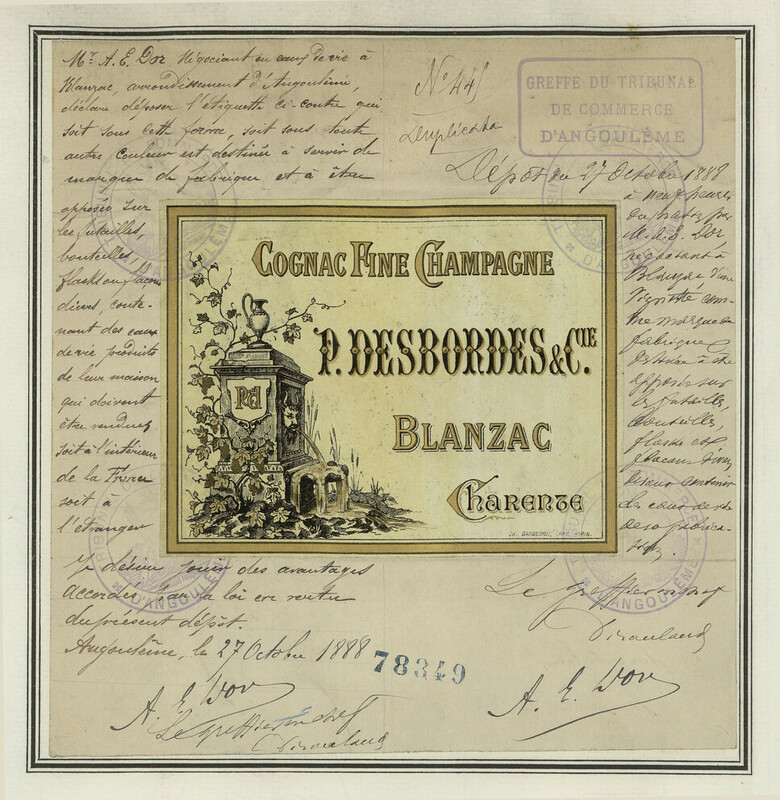 Mr. A. E. Dor Négociant en eaux de vie à
Blanzac, arrondissement d'Angoulême,
déclare déposer l'étiquette ci-contre qui,
soit sous cette forme, soit sous toute
autre couleur est destinée à servir de
marque de fabrique et à être
apposée sur
les futailles,
bouteilles,
flacks ou flacons
divers, conte-
nant des eaux
de vie produits
de leur maison
qui doivent
être vendues
soit à l'intérieur
de la France
soit à
l'étranger
Je désire jouir des avantages
accordés par la loi en vertu
du présent dépôt.
Angoulême, le 27 Octobre 1888
A. E. Dor
Le greffier en chef
No 445
Duplicata
GREFFE DU TRIBUNAL
DE COMMERCE
D'ANGOULÊME
Dépôt du 27 Octobre 1888
à neuf heures
du par
M. A. E. Dor,
négociant à
Blanzac d'une
vignette com-
me marque de
fabrique
destinée à être
apposée sur
les futailles,
bouteilles,
flasks et
flacons divers
devant contenir
des eaux de vie
de sa fabrica-
tion.
Le greffier en chef
A. E. Dor
COGNAC FINE CHAMPAGNE
P. DESBORDES & CIE.
BLANZAC
CHARENTE
PD
D'ANGOULÊME
78349